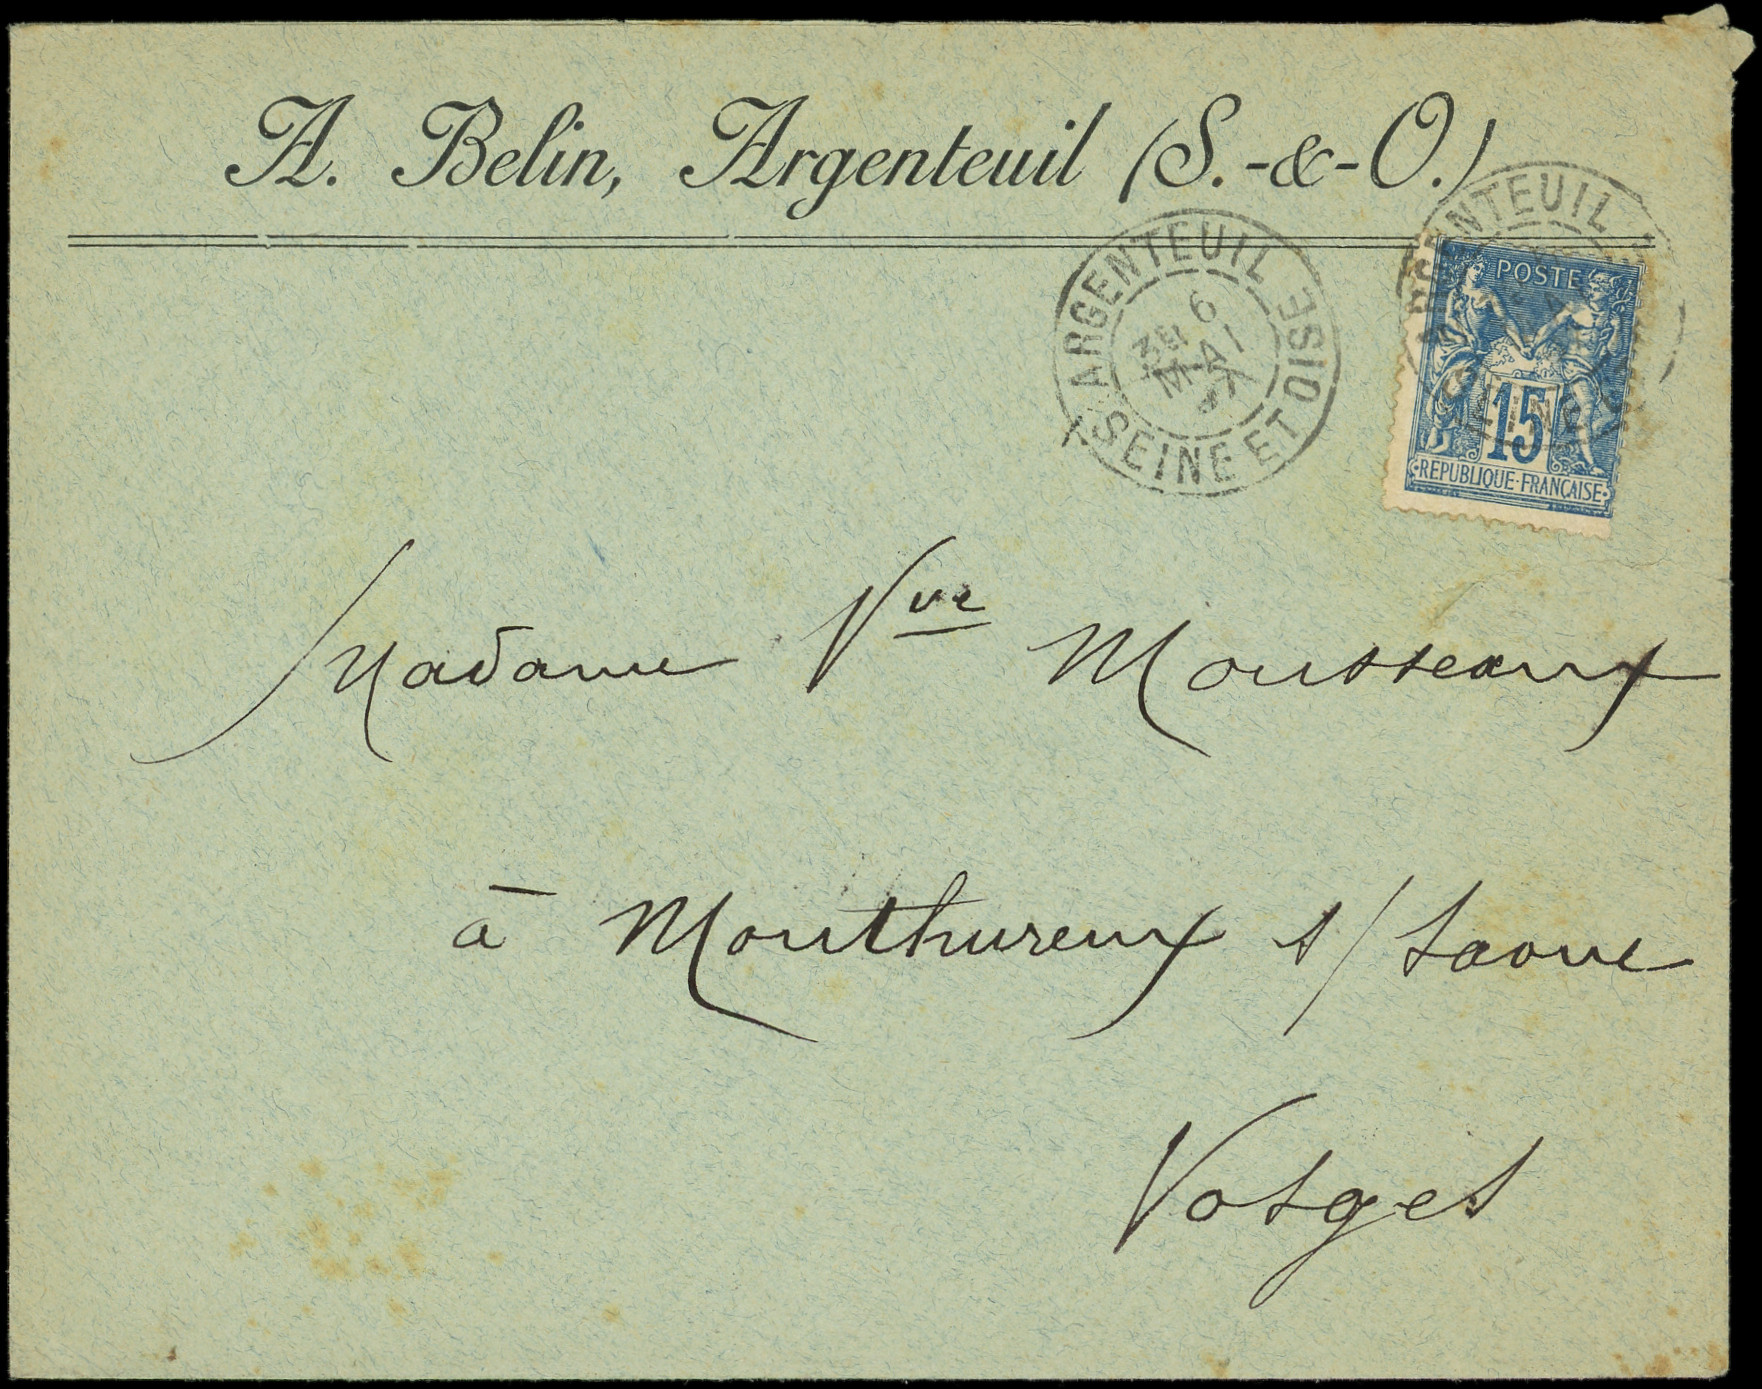 A. Belin, Argenteuil (S.-&-O.)
ARGENTEUIL
SEINE ET OISE
6
MAI
ARGENTEUIL
POSTE
15
REPUBLIQUE·FRANÇAISE
Madame Vve Mousseaux
à Monthureux s/Saone
Vosges